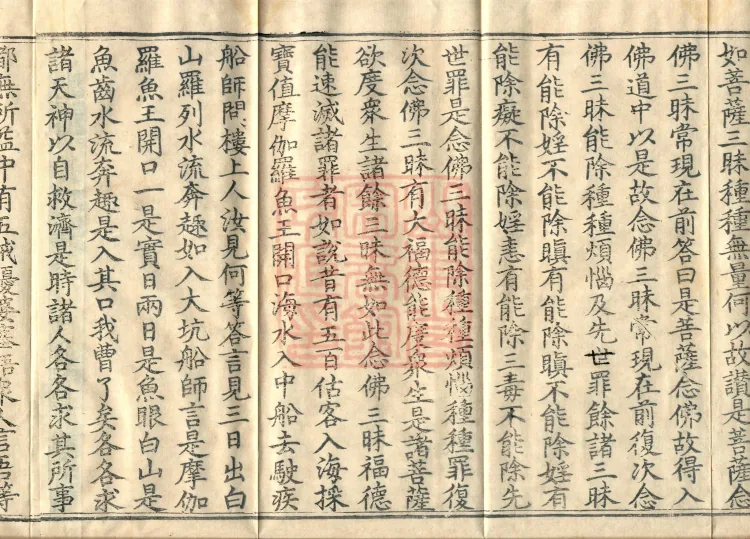 如菩薩三昧種種無量何以故讚是菩薩念
佛三昧常現在前答曰是菩薩念佛故得入
佛道中以是故念佛三昧常現在前復次念
佛三昧能除種種煩惱及先世罪餘諸三昧
有能除婬不能除瞋有能除瞋不能除婬有
能除癡不能除婬恚有能除三毒不能除先
世罪是念佛三昧能除種種煩惱種種罪復
次念佛三昧有大福德能度衆生是諸菩薩
欲度衆生諸餘三昧無如此念佛三昧福德
能速滅諸罪者如說昔有五百估客入海採
寶值摩伽羅魚王開口海水入中船去駛疾
船師問樓上人汝見何等答言見三日出白
山羅列水流奔趣如入大坑船師言是摩伽
羅魚王開口一是實日兩日是魚眼白山是
魚齒水流奔趣是入其口我曹了矣各各求
諸天神以自救濟是時諸人各各求其所事
都無所益中有五戒優婆塞語衆人言吾等